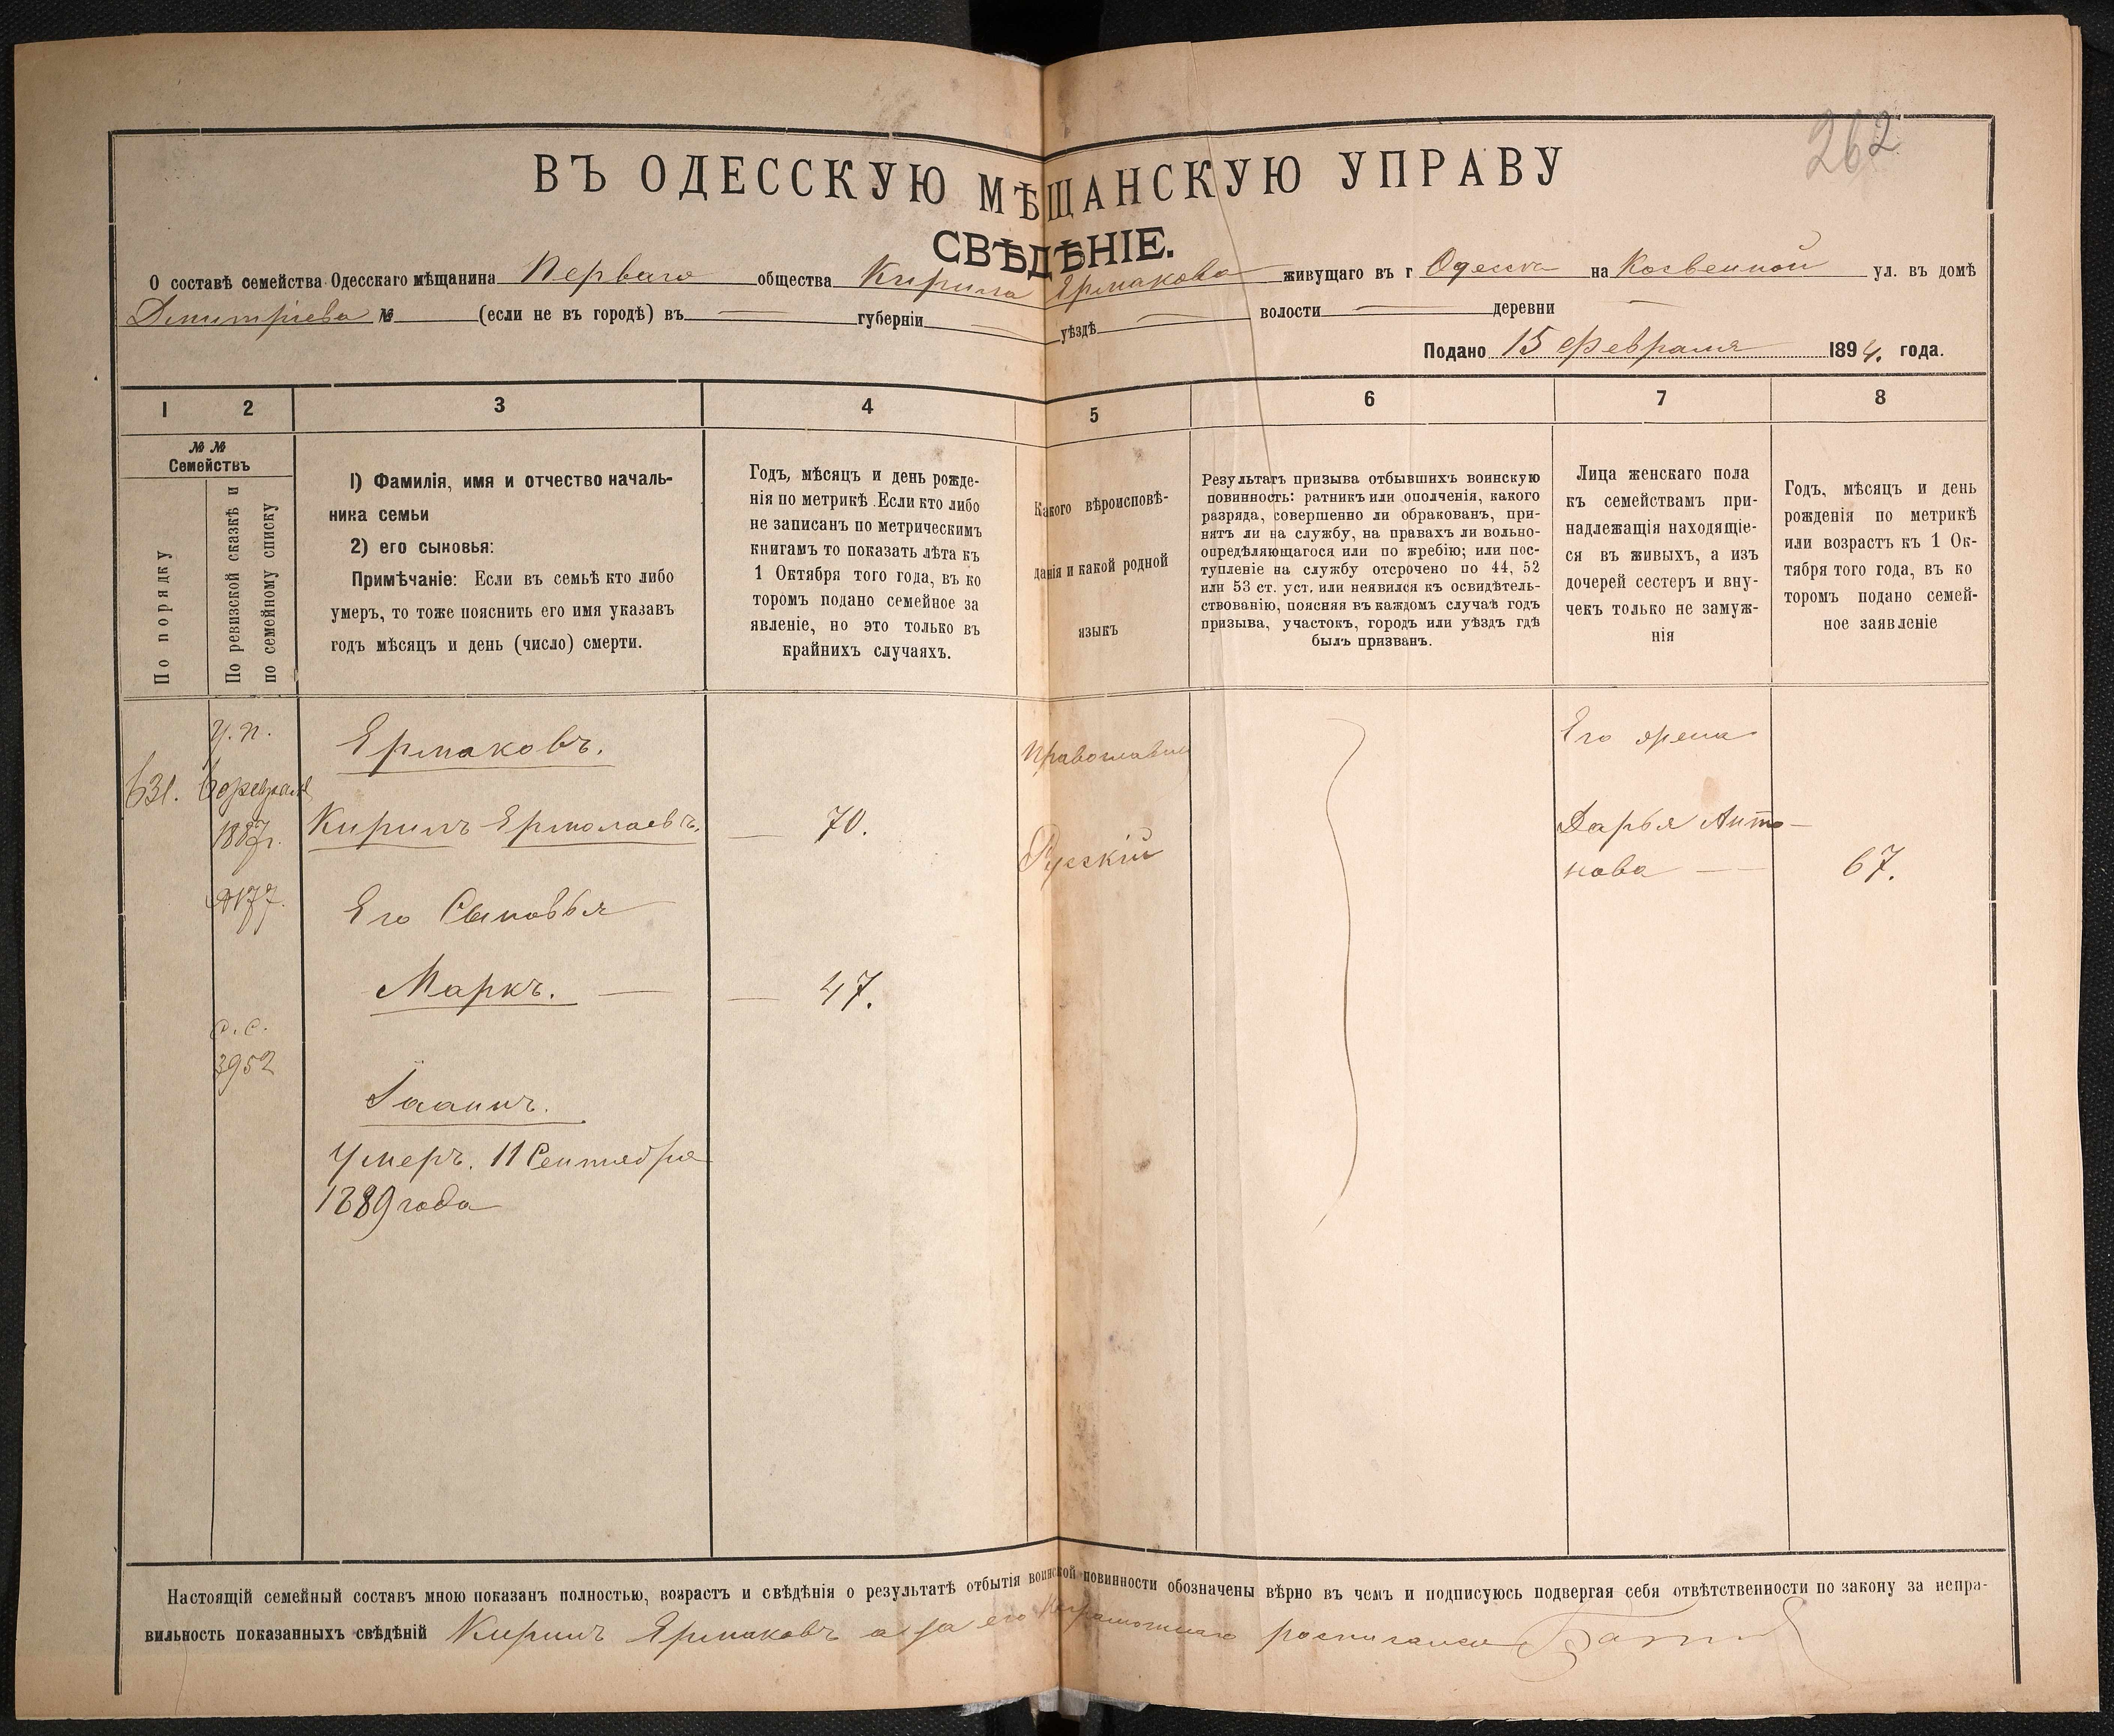 262
ВЪ ОДЕССКУЮ МѢЩАНСКУЮ УПРАВУ
СВѢДѢНІЕ.
О составѣ семейства Одесскаго мѣщанина Перваго общества Кирила Ермакова живущаго въ г Одесса на Косвенной ул. въ домѣ
Дмитріева № (если не въ городѣ) въ — губерніи — уѣздѣ — волости — деревни —
Подано 15 Февраля 1894. года.
1 2 3 4 5 6 7 8
№ №
Семействъ
По порядку
По ревизской сказкѣ и
по семейному списку
1) Фамилія, имя и отчество началь-
ника семьи
2) его сыновья:
Примѣчаніе: Если въ семьѣ кто либо
умеръ, то тоже пояснить его имя указавъ
годъ мѣсяцъ и день (число) смерти.
Годъ, мѣсяцъ и день рожде-
нія по метрикѣ. Если кто либо
не записанъ по метрическимъ
книгамъ то показать лѣта къ
1 Октября того года, въ ко
торомъ подано семейное за
явленіе, но это только въ
крайнихъ случаяхъ.
Какого вѣроисповѣ-
данія и какой родной
языкъ
Результатъ призыва отбывшихъ воинскую
повинность: ратникъ или ополченія, какого
разряда, совершенно ли обракованъ, при-
нятъ ли на службу, на правахъ ли вольно-
опредѣляющагося или по жребію; или пос-
тупленіе на службу отсрочено по 44, 52
или 53 ст. уст. или неявился къ освидѣтель-
ствованію, поясняя въ каждомъ случаѣ годъ
призыва, участокъ, городъ или уѣздъ гдѣ
былъ призванъ.
Лица женскаго пола
къ семействамъ при-
надлежащія находящіе-
ся въ живыхъ, а изъ
дочерей сестеръ и вну-
чекъ только не замуж-
нія
Годъ, мѣсяцъ и день
рожденія по метрикѣ
или возрастъ къ 1 Ок-
тября того года, въ ко
торомъ подано семей-
ное заявленіе
631.
у.п.
6 февраля
1887г.
№177.
с.с.
3952
Ермаковъ.
Кирилъ Ермолаевъ. — 70.
Его Сыновья
Маркъ. — — 47.
Іоаннъ.
Умеръ. 11 Сентября
1889 года
Православный
Русскій
Его жена
Дарья Анто-
нова — 67.
Настоящій семейный составъ мною показанъ полностью, возрастъ и свѣдѣнія о результатѣ отбытія воинской повинности обозначены вѣрно въ чемъ и подписуюсь подвергая себя отвѣтственности по закону за непра-
вильность показанныхъ свѣдѣній Кирилъ Ермаковъ а за его неграмотнаго росписался